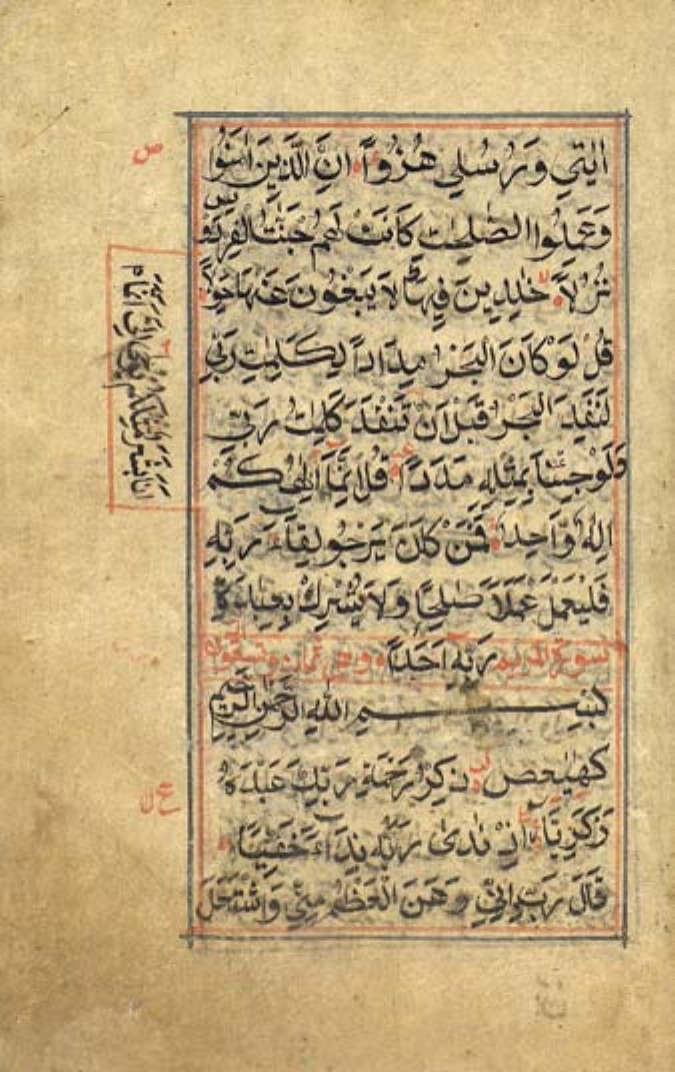 اٰيٰتِي وَرُسُلِي هُزُوًا اِنَّ الَّذِينَ اٰمَنُوا
وَعَمِلُوا الصّٰلِحٰتِ كَانَتْ لَهُمْ جَنّٰتُ الْفِرْدَوْسِ
نُزُلًا خٰلِدِينَ فِيهَا لَا يَبْغُونَ عَنْهَا حِوَلًا
قُلْ لَوْ كَانَ الْبَحْرُ مِدَادًا لِكَلِمٰتِ رَبِّي
لَنَفِدَ الْبَحْرُ قَبْلَ اَنْ تَنْفَدَ كَلِمٰتُ رَبِّي
وَلَوْ جِئْنَا بِمِثْلِهِ مَدَدًا قُلْ اِنَّمَا اِلٰهُكُمْ
اِلٰهٌ وَّاحِدٌ فَمَنْ كَانَ يَرْجُو لِقَاءَ رَبِّهِ
فَلْيَعْمَلْ عَمَلًا صٰلِحًا وَّلَا يُشْرِكْ بِعِبَادَةِ
سورة المريم رَبِّهِ اَحَدًا وهي ثمان وتسعون
بِسْمِ اللّٰهِ الرَّحْمٰنِ الرَّحِيمِ
كهيعص ذِكْرُ رَحْمَةِ رَبِّكَ عَبْدَهُ
زَكَرِيَّا اِذْ نَادٰى رَبَّهُ نِدَاءً خَفِيًّا
قَالَ رَبِّ اِنِّي وَهَنَ الْعَظْمُ مِنِّي وَاشْتَعَلَ
انا بشر مثلكم يوحى الي انما
ص
ع